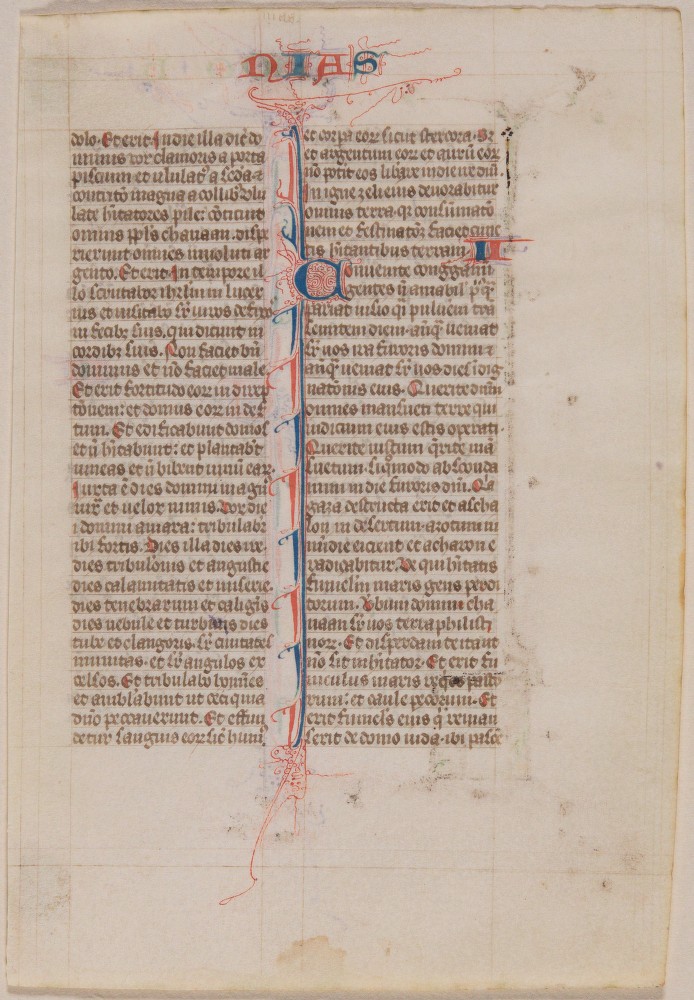 NIAS
dolo. Et erit. In die illa dic̄ do
minus vox clamoris a porta
piscium et ululat᷒ a sc̄da. et
contricō magna a collib᷒. Ulu
late hītatores pile: cōticuit
omnis ppl̄s chanaan. dispe
rierunt om̄es involuti ar
gento. Et erit. In tempore il
lo scrutabor ihrl̄m in lucer
nis et visitabo sr̄ viros defixo
in fecib᷒ suis, qui dicunt in
cordib᷒ suis. Non faciet bn̄
dominus et nō faciet male.
Et erit fortitudo eoꝝ in direp
tōnem: et domus eoꝝ in deſ
tum. Et edificabunt domos
et ñ hītabunt: et plantab̄t
vineas et ñ bibent vinū eaꝝ.
Iuxta ē dies domini magn᷒
iux̄ et velox nimis. Vox diei
domini amara: tribulabr̄
ibi fortis. Dies illa dies ire.
dies tribulōnis et angustie
dies calamitatis et miserie.
dies tenebrarum et caligīs
dies nebule et turbinis dies
tube et clangoris. sr̄ civitates
munitas. et sr̄ angulos ex
celsos. Et tribulabo homīes
et amb̄labunt ut ceci quia
dn̄o peccaverunt. Et effun
detur sanguis eoꝝ sic̄ hum᷒
et corpa eoꝝ sicut stercora. Sꝫ
et argentum eoꝝ et aurū eoꝝ
nō potit eos lib̄are in die ire dn̄i.
In igne zeli eius devorabitur
omnis terra. qꝛ consumatō
nem cū festinatōe faciet cunc
tis hītantibus terram. II
Convenite cong̅gami᷒
gentes ñ amabil᷒ p᷒ꝙ
pariat iussio q̄si pulv̄em tra
seuntem diem. anteꝙ veniat
sr̄ vos ira furoris domini. et
anꝙ veniat sr̄ vos dies idig
natōnis eius. Querite dn̄m
omnes mansueti terre qui
iudicium eius estis operati.
Querite iustum q̄rite mā
suetum. siquomodo abscōda
mini in die furoris dn̄i. Qꝛ
gaza destructa erit et asca
lon in desertum. azotum in
m̄die eicient et acharon e
radicabitur. Ve qui hītatis
funiclm̄ maris gens perdi
torum. Vbum domini cha
naan sr̄ vos terra philisti
noꝝ. Et disperdam te ita ut
nō sit inhītator. Et erit fu
niculus maris req̄es pasto
rum: et caule pecorum. Et
erit funicls̄ eius q̄ reman
serit de domo iuda. ibi pasce